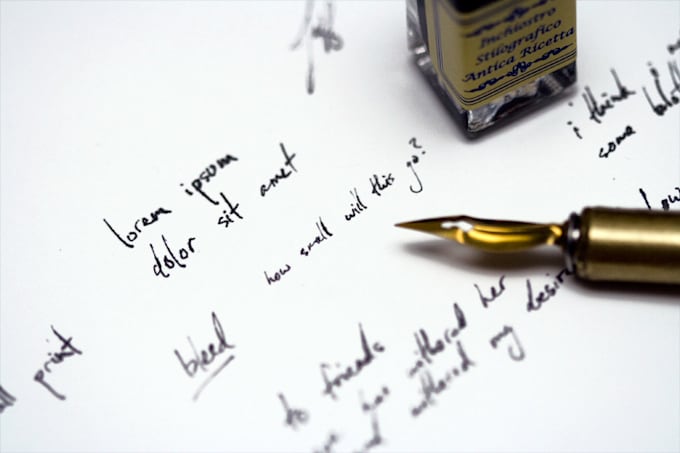 Inchiostro
Stilografico
Antica Ricetta
i think
some
lorem ipsum
dolor sit amet
how small will this go?
print
bleed
to friends
withered her
withered my desire